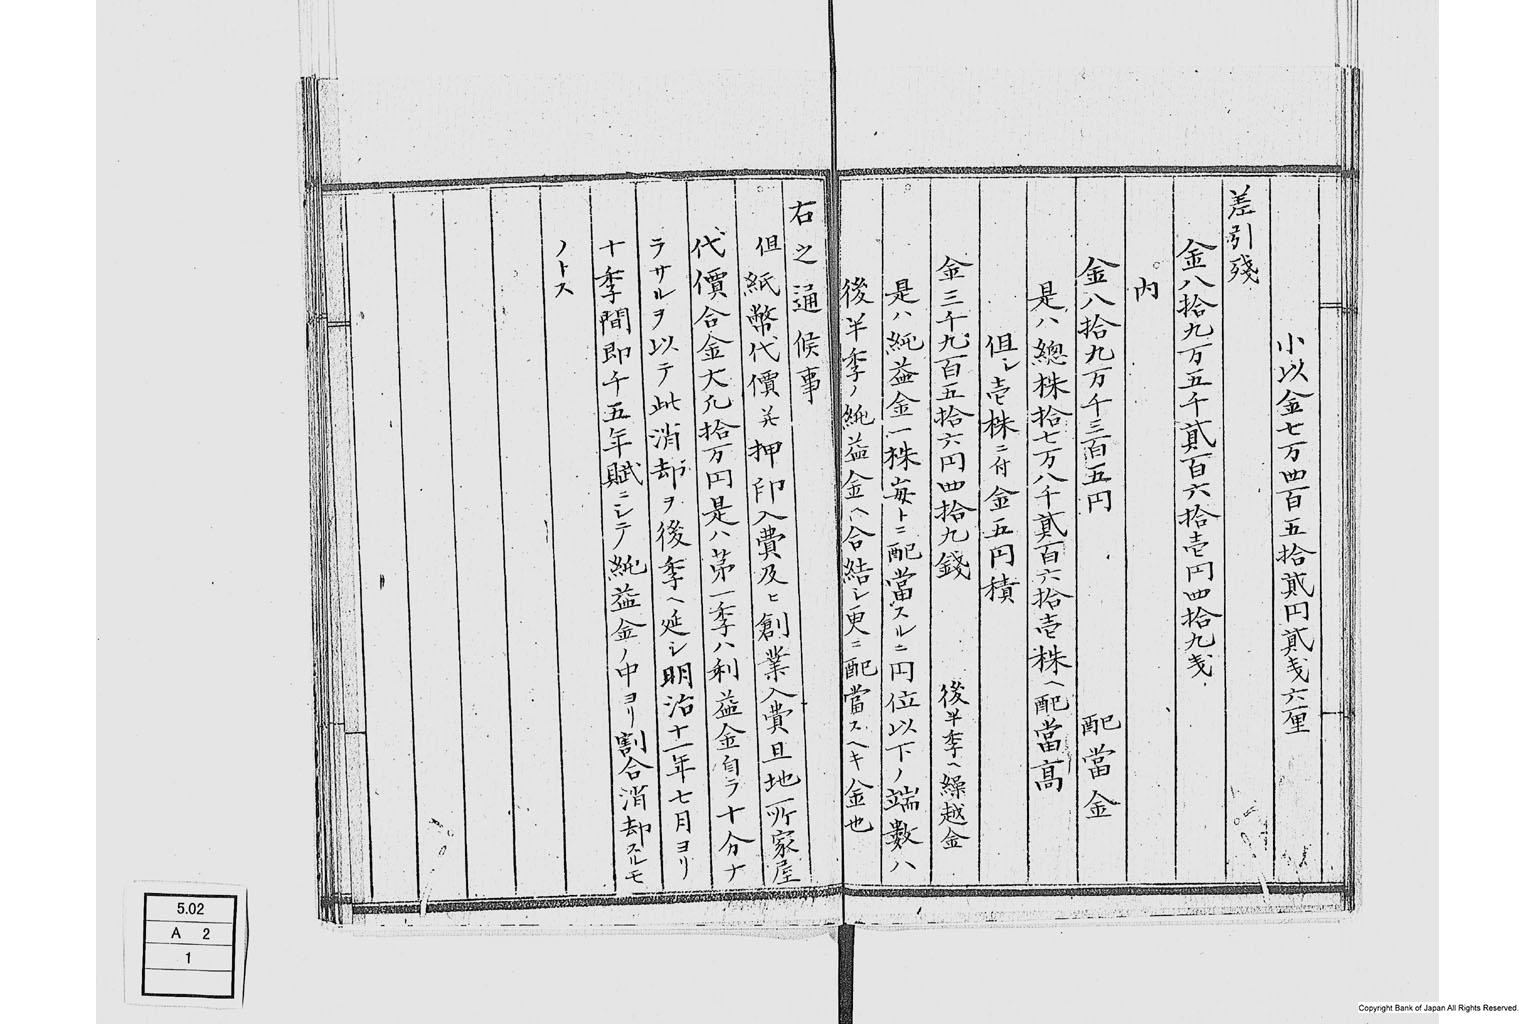 小以金七万四百五拾貳円貳戋六厘
差引殘
金八拾九万五千貳百六拾壱円四拾九戋
内
金八拾九万千三百五円　配當金
是ハ總株拾七万八千貳百六拾壱株ヘ配當高
但シ壱株ニ付金五円積
金三千九百五拾六円四拾九錢　後半季ヘ繰越金
是ハ純益金一株毎トニ配當スルニ円位以下ノ端數ハ
後半季ノ純益金ヘ合結シ更ニ配當スヘキ金也
右之通候事
但紙幣代價并押印入費及ヒ創業入費且地所家屋
代價合金大凡拾万円是ハ第一季ハ利益金自ラ十分ナ
ラサルヲ以テ此消却ヲ後季ヘ延シ明治十一年七月ヨリ
十季間即チ五年賦ニシテ純益金ノ中ヨリ割合消却スルモ
ノトス
5.02
A 2
1
Copyright Bank of Japan All Rights Reserved.